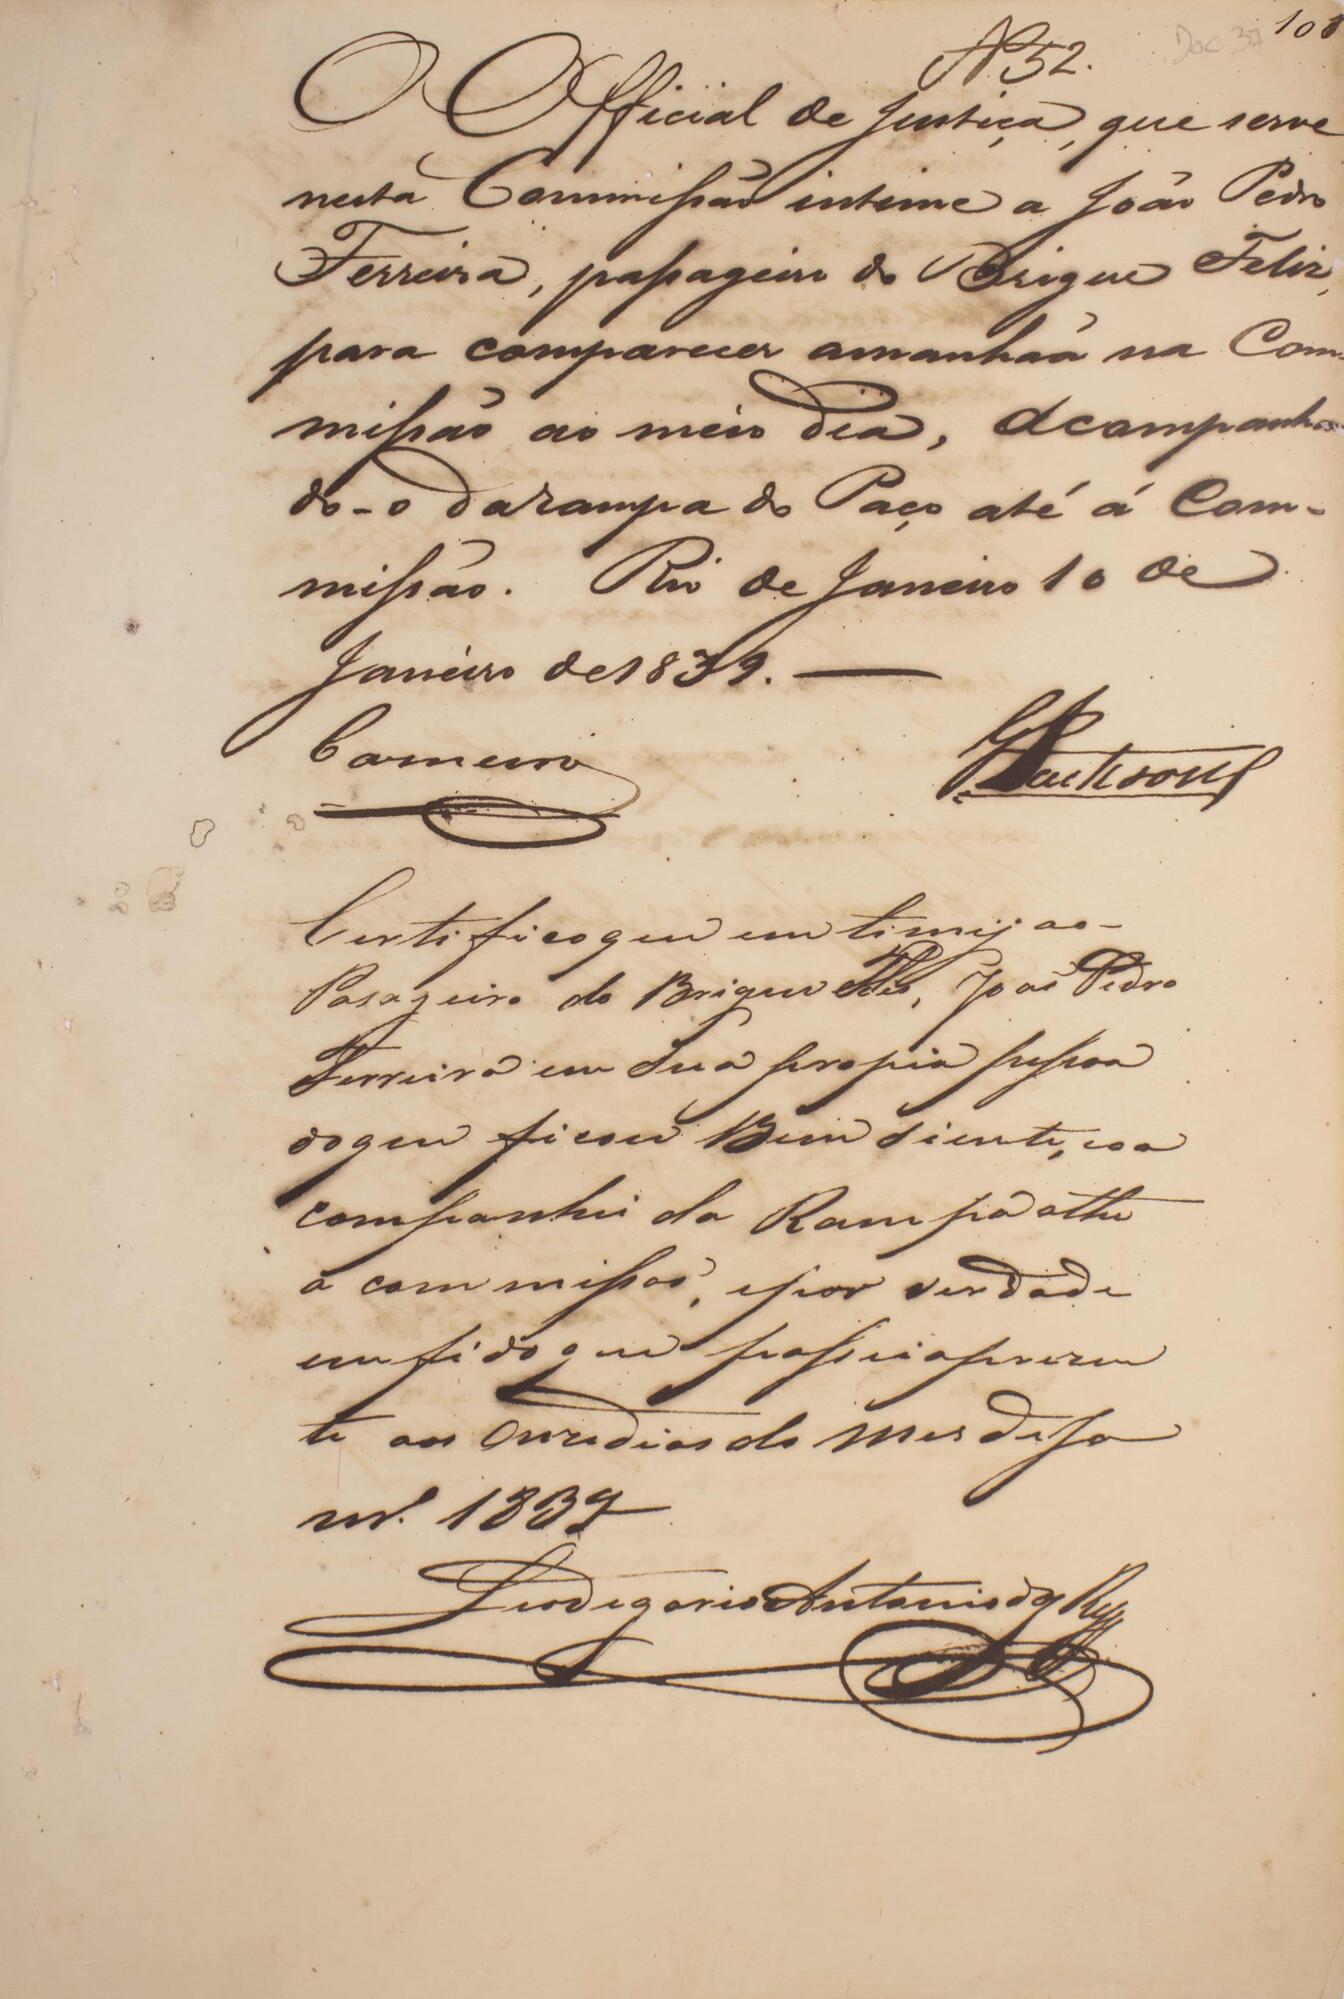 Doc 37
N.º 52.
O Official de Justiça, que serve
nesta Commissão intime a João Pedro
Ferreira, passageiro do Brigue Feliz,
para comparecer amanhãa na Com-
missão ao meio dia, acompanhan-
do-o da rampa do Paço até á Com-
missão. Rio de Janeiro 10 de
Janeiro de 1839.
Carneiro
Certifico que em timij ao
Pasageiro do Brigue João Pedro
Ferreira em Sua propia pessoa
do que ficou Bem siente, e o a
companhei da Rampa athe
a commissaõ, e por verdade
em fé do que passei a prezen
te aos Onze dias do Mes de Ja
nr.º 1839
Leodegario Antonio dos Reys